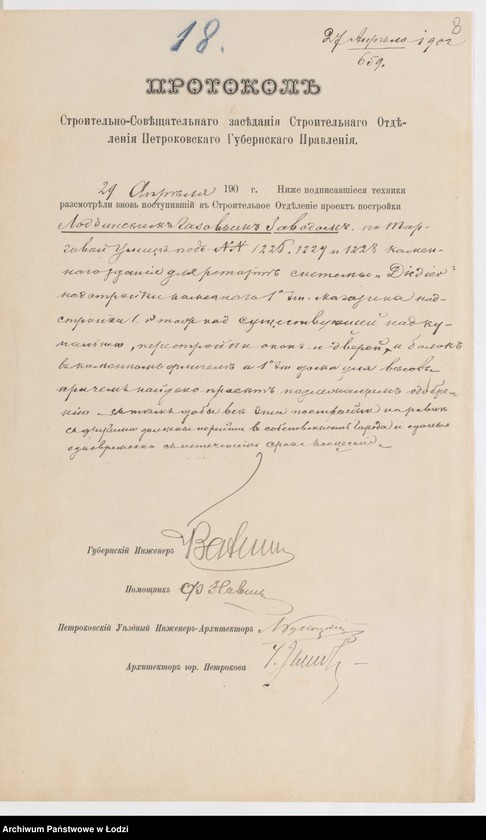 18.
8
27 Апреля 1902
659.
ПРОТОКОЛЪ
Строительно-Совѣщательнаго засѣданія Строительнаго Отдѣ-
ленія Петроковскаго Губернскаго Правленія.
29 Апреля 190 г. Ниже подписавшіеся техники
разсмотрѣли вновь поступившій въ Строительное Отдѣленіе проектъ постройки
Лодзинскимъ Газовымъ Заводомъ, по Тар-
говой улицѣ подъ №№ 1226, 1227 и 1228 камен-
наго зданія для ретортъ системы „Дидіе"
надстройки каменнаго 1 эт. магазина над-
стройки 1 этаж. надъ существующей
перестройки оконъ и дверей, и балокъ
въ каменномъ флигелѣ и 1 эт. для вѣсовъ
причемъ найдено проектъ подлежащимъ одобре-
нію съ тѣмъ чтобы всѣ эти постройки наравнѣ
съ другими должны перейти в собственность Города
одновременно съ истеченіемъ срока концессіи.
Губернскій Инженеръ
Помощникъ
Петроковскій Уѣздный Инженеръ-Архитекторъ
Архитекторъ гор. Петрокова
Archiwum Państwowe w Łodzi